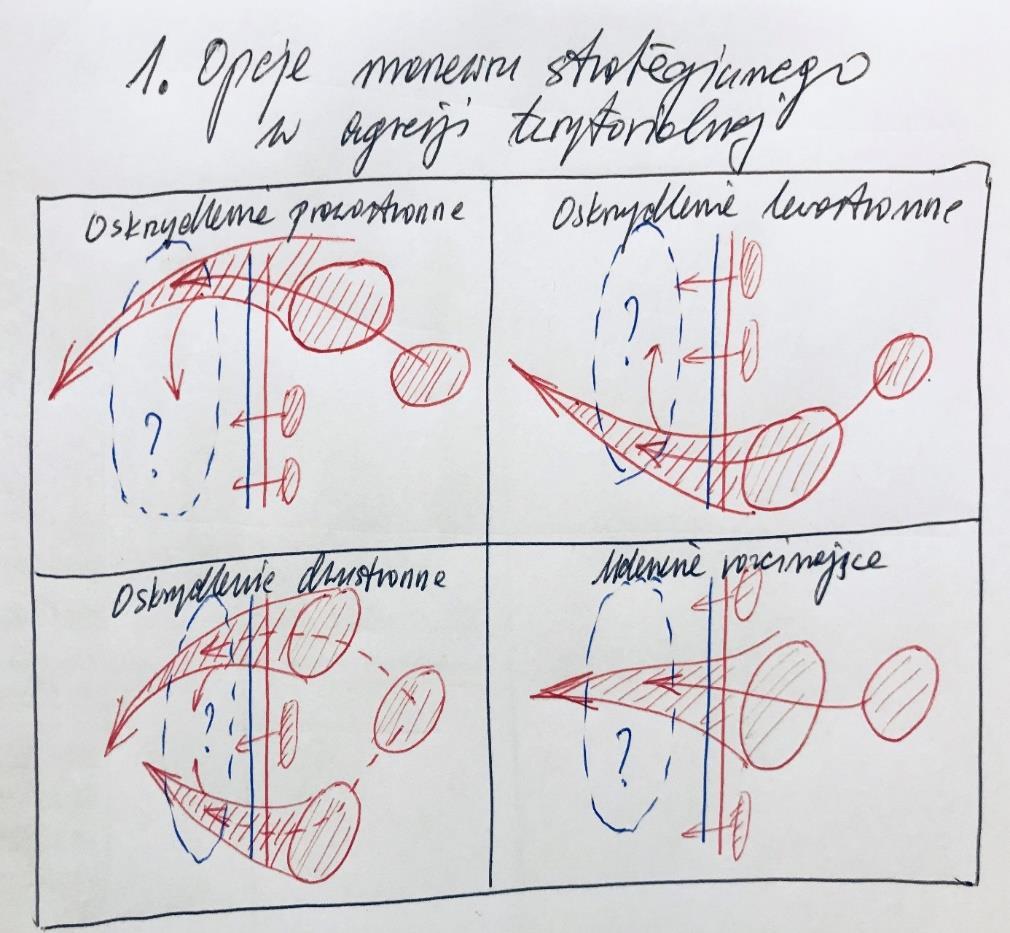 1. Opcje manewru strategicznego
w agresji terytorialnej
Oskrzydlenie prawostronne
Oskrzydlenie lewostronne
?
?
Oskrzydlenie dwustronne
Uderzenie rozcinające
?
?